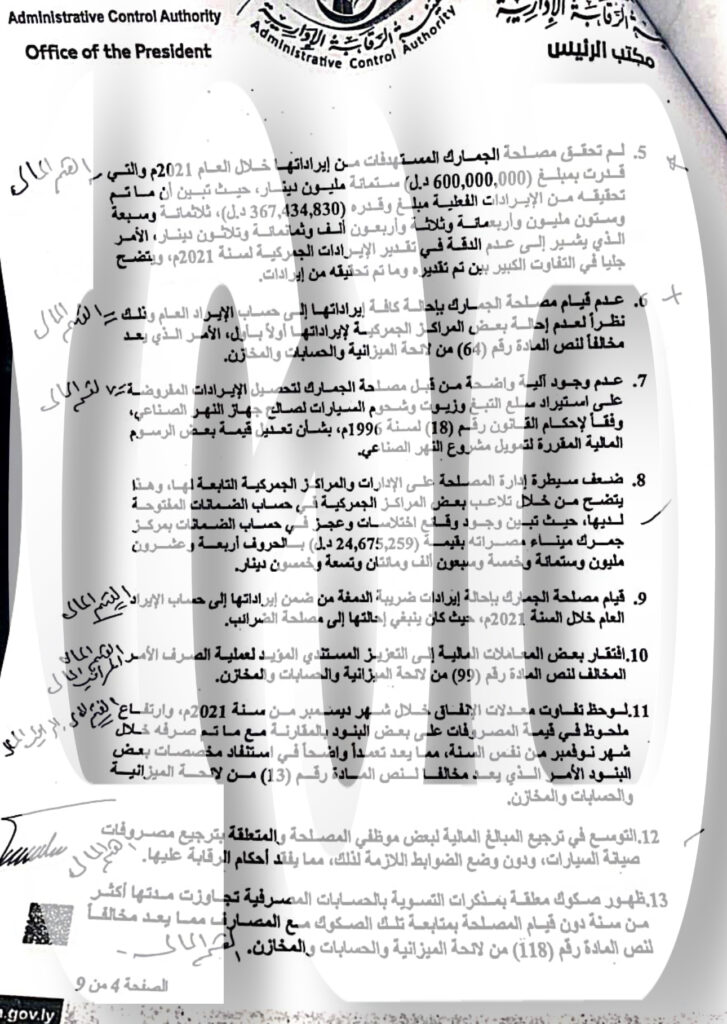 Administrative Control Authority
Office of the President
الرقابة الإدارية
Administrative Control Authority
الرقابة الإدارية
مكتب الرئيس
5. لم تحقق مصلحة الجمارك المستهدفات من إيراداتها خلال العام 2021م والتي
قدرت بمبلغ (600,000,000 د.ل) ستمائة مليون دينار، حيث تبين أن ما تم
تحقيقه من الإيرادات الفعلية مبلغ وقدره (367,434,830 د.ل)، ثلاثمائة وسبعة
وستون مليون وأربعمائة وثلاثة وأربعون ألف وثمانمائة وثلاثون دينار، الأمر
الذي يشير إلى عدم الدقة في تقدير الإيرادات الجمركية لسنة 2021م، ويتضح
جليا في التفاوت الكبير بين تم تقديره وما تم تحقيقه من إيرادات.
6. عدم قيام مصلحة الجمارك بإحالة كافة إيراداتها إلى حساب الإيراد العام وذلك
نظراً لعدم إحالة بعض المراكز الجمركية لإيراداتها أولاً بأول، الأمر الذي يعد
مخالفاً لنص المادة رقم (64) من لائحة الميزانية والحسابات والمخازن.
7. عدم وجود آلية واضحة من قبل مصلحة الجمارك لتحصيل الإيرادات المفروضة
على استيراد سلع التبغ وزيوت وشحوم السيارات لصالح جهاز النهر الصناعي،
وفقاً لإحكام القانون رقم (18) لسنة 1996م، بشأن تعديل قيمة بعض الرسوم
المالية المقررة لتمويل مشروع النهر الصناعي.
8. ضعف سيطرة إدارة المصلحة على الإدارات والمراكز الجمركية التابعة لها، وهذا
يتضح من خلال تلاعب بعض المراكز الجمركية في حساب الضمانات المفتوحة
لديها، حيث تبين وجود وقائع اختلاسات وعجز في حساب الضمانات بمركز
جمرك ميناء مصراته بقيمة (24,675,259 د.ل) بالحروف أربعة وعشرون
مليون وستمائة وخمسة وسبعون ألف ومائتان وتسعة وخمسون دينار.
9. قيام مصلحة الجمارك بإحالة إيرادات ضريبة الدمغة من ضمن إيراداتها إلى حساب الإيراد
العام خلال السنة 2021م، حيث كان ينبغي إحالتها إلى مصلحة الضرائب.
10. افتقار بعض المعاملات المالية إلى التعزيز المستندي المؤيد لعملية الصرف الأمر
المخالف لنص المادة رقم (99) من لائحة الميزانية والحسابات والمخازن.
11. لوحظ تفاوت معدلات الإنفاق خلال شهر ديسمبر من سنة 2021م، وارتفاع
ملحوظ في قيمة المصروفات على بعض البنود بالمقارنة مع ما تم صرفه خلال
شهر نوفمبر من نفس السنة، مما يعد تعمداً واضحاً في استنفاد مخصصات بعض
البنود الأمر الذي يعد مخالفا لنص المادة رقم (13) من لائحة الميزانية
والحسابات والمخازن.
12. التوسع في ترجيع المبالغ المالية لبعض موظفي المصلحة والمتعلقة بترجيع مصروفات
صيانة السيارات، ودون وضع الضوابط اللازمة لذلك، مما يفقد أحكام الرقابة عليها.
13. ظهور صكوك معلقة بمذكرات التسوية بالحسابات المصرفية تجاوزت مدتها أكثر
من سنة دون قيام المصلحة بمتابعة تلك الصكوك مع المصارف مما يعد مخالفاً
لنص المادة رقم (118) من لائحة الميزانية والحسابات والمخازن.
الصفحة 4 من 9
a.gov.ly